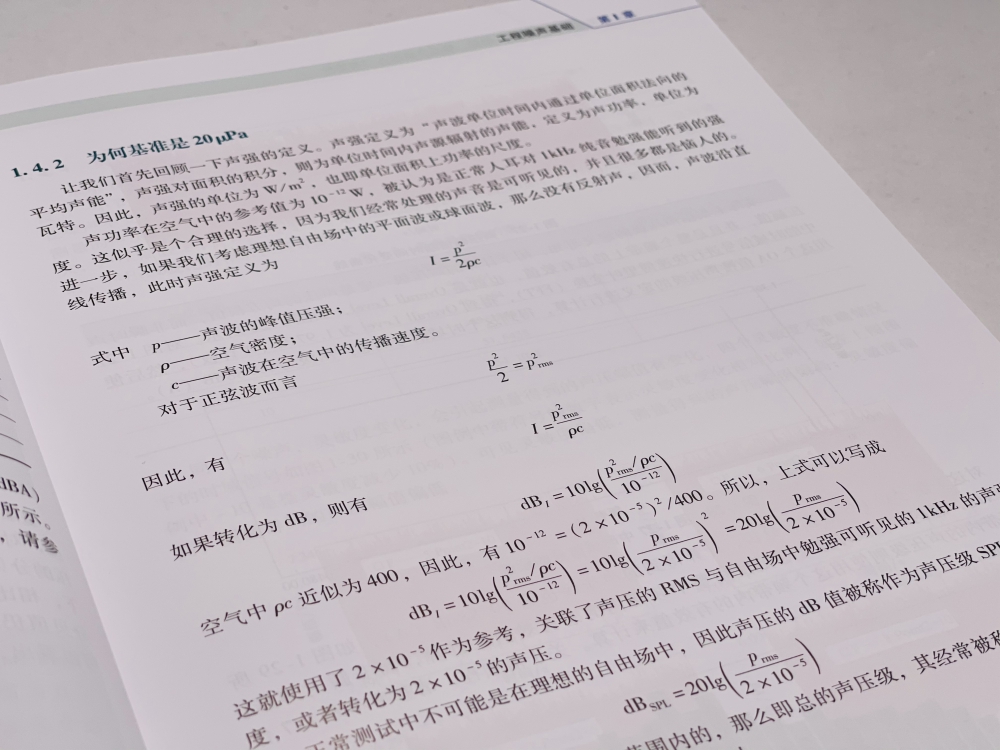 工程噪声基础
第1章
1.4.2 为何基准是20μPa
让我们首先回顾一下声强的定义。声强定义为“声波单位时间内通过单位面积法向的
平均声能”，声强对面积的积分，则为单位时间内声源辐射的声能，定义为声功率，单位为
瓦特。因此，声强的单位为W/m²，也即单位面积上功率的尺度。
声功率在空气中的参考值为10⁻¹²W，被认为是正常人耳对1kHz纯音勉强能听到的强
度。这似乎是个合理的选择，因为我们经常处理的声音是可听见的，并且很多都是恼人的。
进一步，如果我们考虑理想自由场中的平面波或球面波，那么没有反射声，因而，声波沿直
线传播，此时声强定义为
I = p²/2ρc
式中 p——声波的峰值压强；
ρ——空气密度；
c——声波在空气中的传播速度。
对于正弦波而言
p²/2 = p²rms
因此，有
I = p²rms/ρc
如果转化为dB，则有
dB_I = 10lg(p²rms/ρc / 10⁻¹²)
空气中ρc近似为400，因此，有10⁻¹² = (2×10⁻⁵)²/400。所以，上式可以写成
dB_I = 10lg(p²rms/ρc / 10⁻¹²) = 10lg(p rms / 2×10⁻⁵)² = 20lg(p rms / 2×10⁻⁵)
这就使用了2×10⁻⁵作为参考，关联了声压的RMS与自由场中勉强可听见的1kHz的声强
度，或者转化为2×10⁻⁵的声压。
正常测试中不可能是在理想的自由场中，因此声压的dB值被称作为声压级SPL
dB_SPL = 20lg(p rms / 2×10⁻⁵)
范围内的，那么即总的声压级，其经常被称
dBA)
所示。
，请参